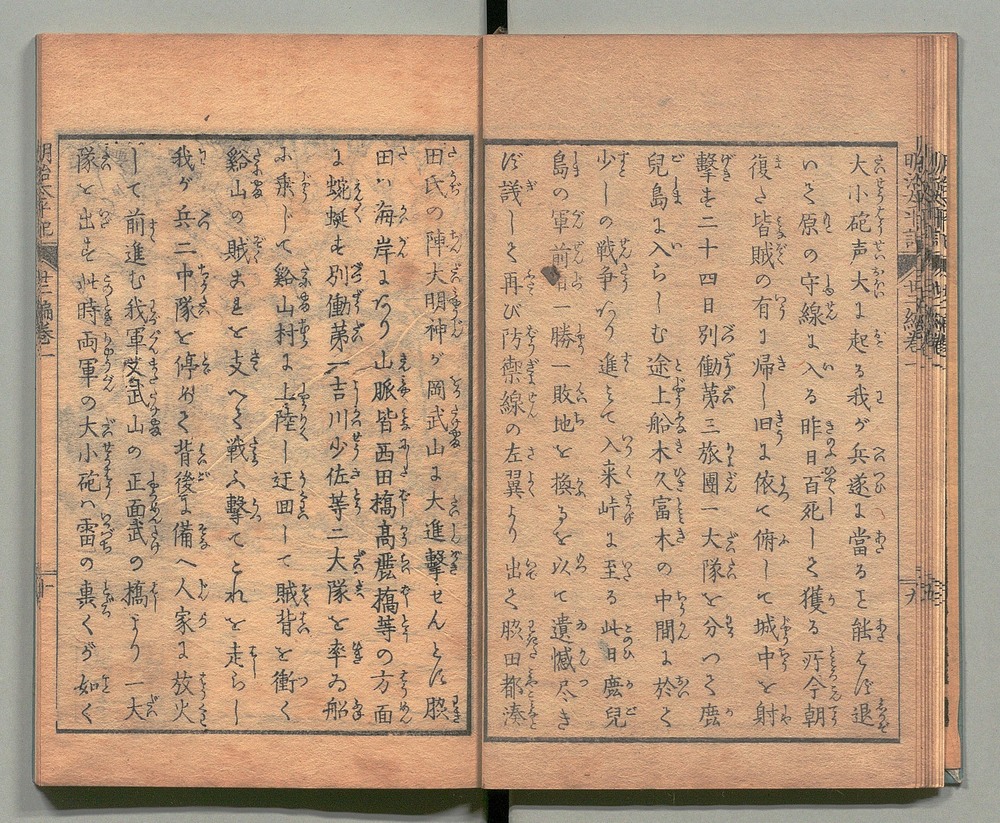 大小砲声大に起る我が兵遂に當ると能はず退
いて原の守線に入る昨日百死して獲る所今朝
復た皆賊の有に帰し旧に依て俯して城中を射
撃す二十四日別働第三旅團一大隊を分つて鹿
兒島に入らしむ途上船木久富木の中間に於て
少しの戦争あり進んで入来峠に至る此日鹿兒
島の軍前日一勝一敗地を換るを以て遺憾尽き
ず議して再び防禦線の左翼より出て脇田都湊
田氏の陣大明神が岡武山に大進撃せんとす脇
田ハ海岸にあり山脈皆西田橋高麗橋等の方面
に蜿蜒す別働第一吉川少佐等二大隊を率ゐ船
に乗じて谿山村に上陸し迂回して賊背を衝く
谿山の賊まさに支へて戦ふ撃てこれを走らし
我が兵二中隊を停めて背後に備へ人家に放火
して前進む我軍又武山の正面武の橋より一大
隊を出す此時両軍の大小砲ハ雷の轟くが如く
明治太平記
廿二編巻一
十